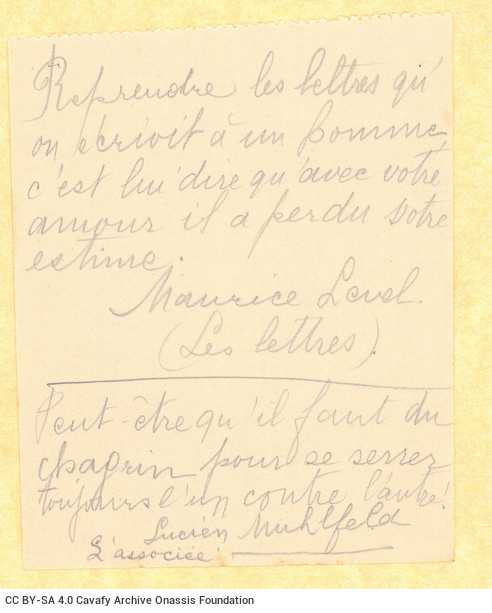 Reprendre les lettres qu'
on écrivit à un homme,
c'est lui dire qu'avec votre
amour il a perdu votre
estime.
Maurice Level.
(Les lettres).
Peut-être qu'il faut du
chagrin pour se serrer
toujours l'un contre l'autre!
Lucien Muhlfeld
L'associée.
CC BY-SA 4.0 Cavafy Archive Onassis Foundation